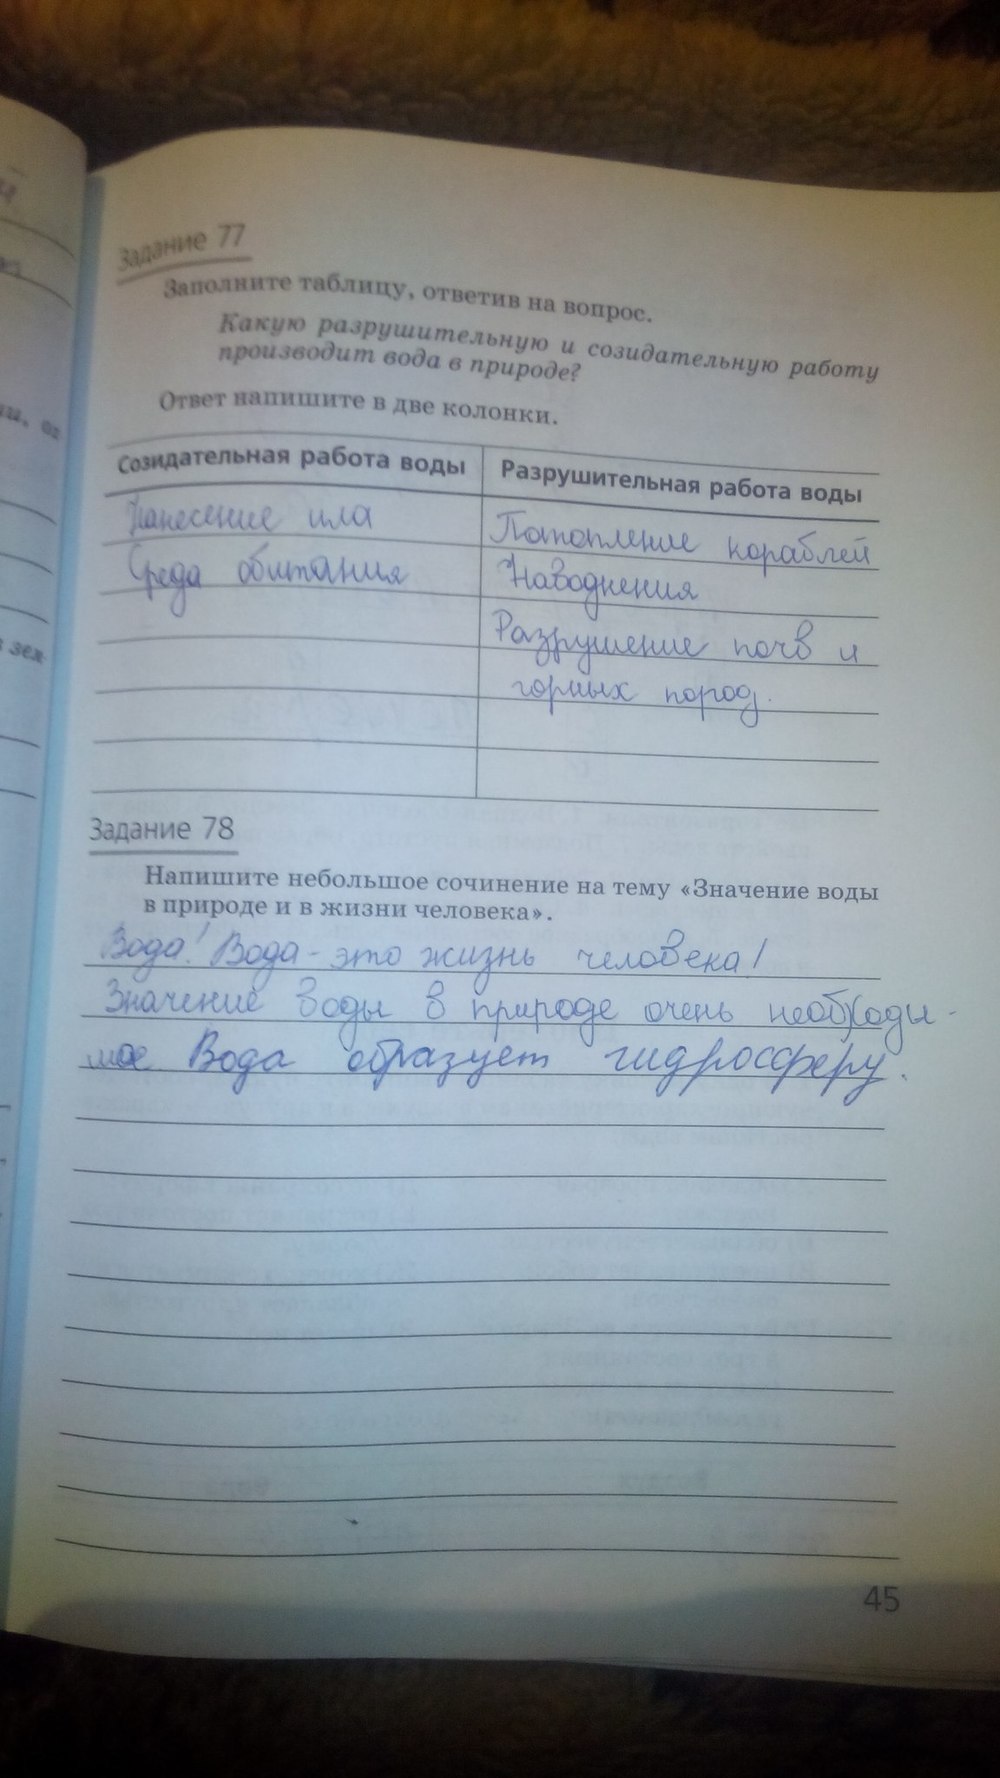 Задание 77
Заполните таблицу, ответив на вопрос.
Какую разрушительную и созидательную работу
производит вода в природе?
Ответ напишите в две колонки.
Созидательная работа воды Разрушительная работа воды
Нанесение ила Потопление кораблей
Среда обитания Наводнения
Разрушение почв и
горных пород.
Задание 78
Напишите небольшое сочинение на тему «Значение воды
в природе и в жизни человека».
Вода! Вода - это жизнь человека!
Значение воды в природе очень необходи-
мое Вода образует гидросферу.
45